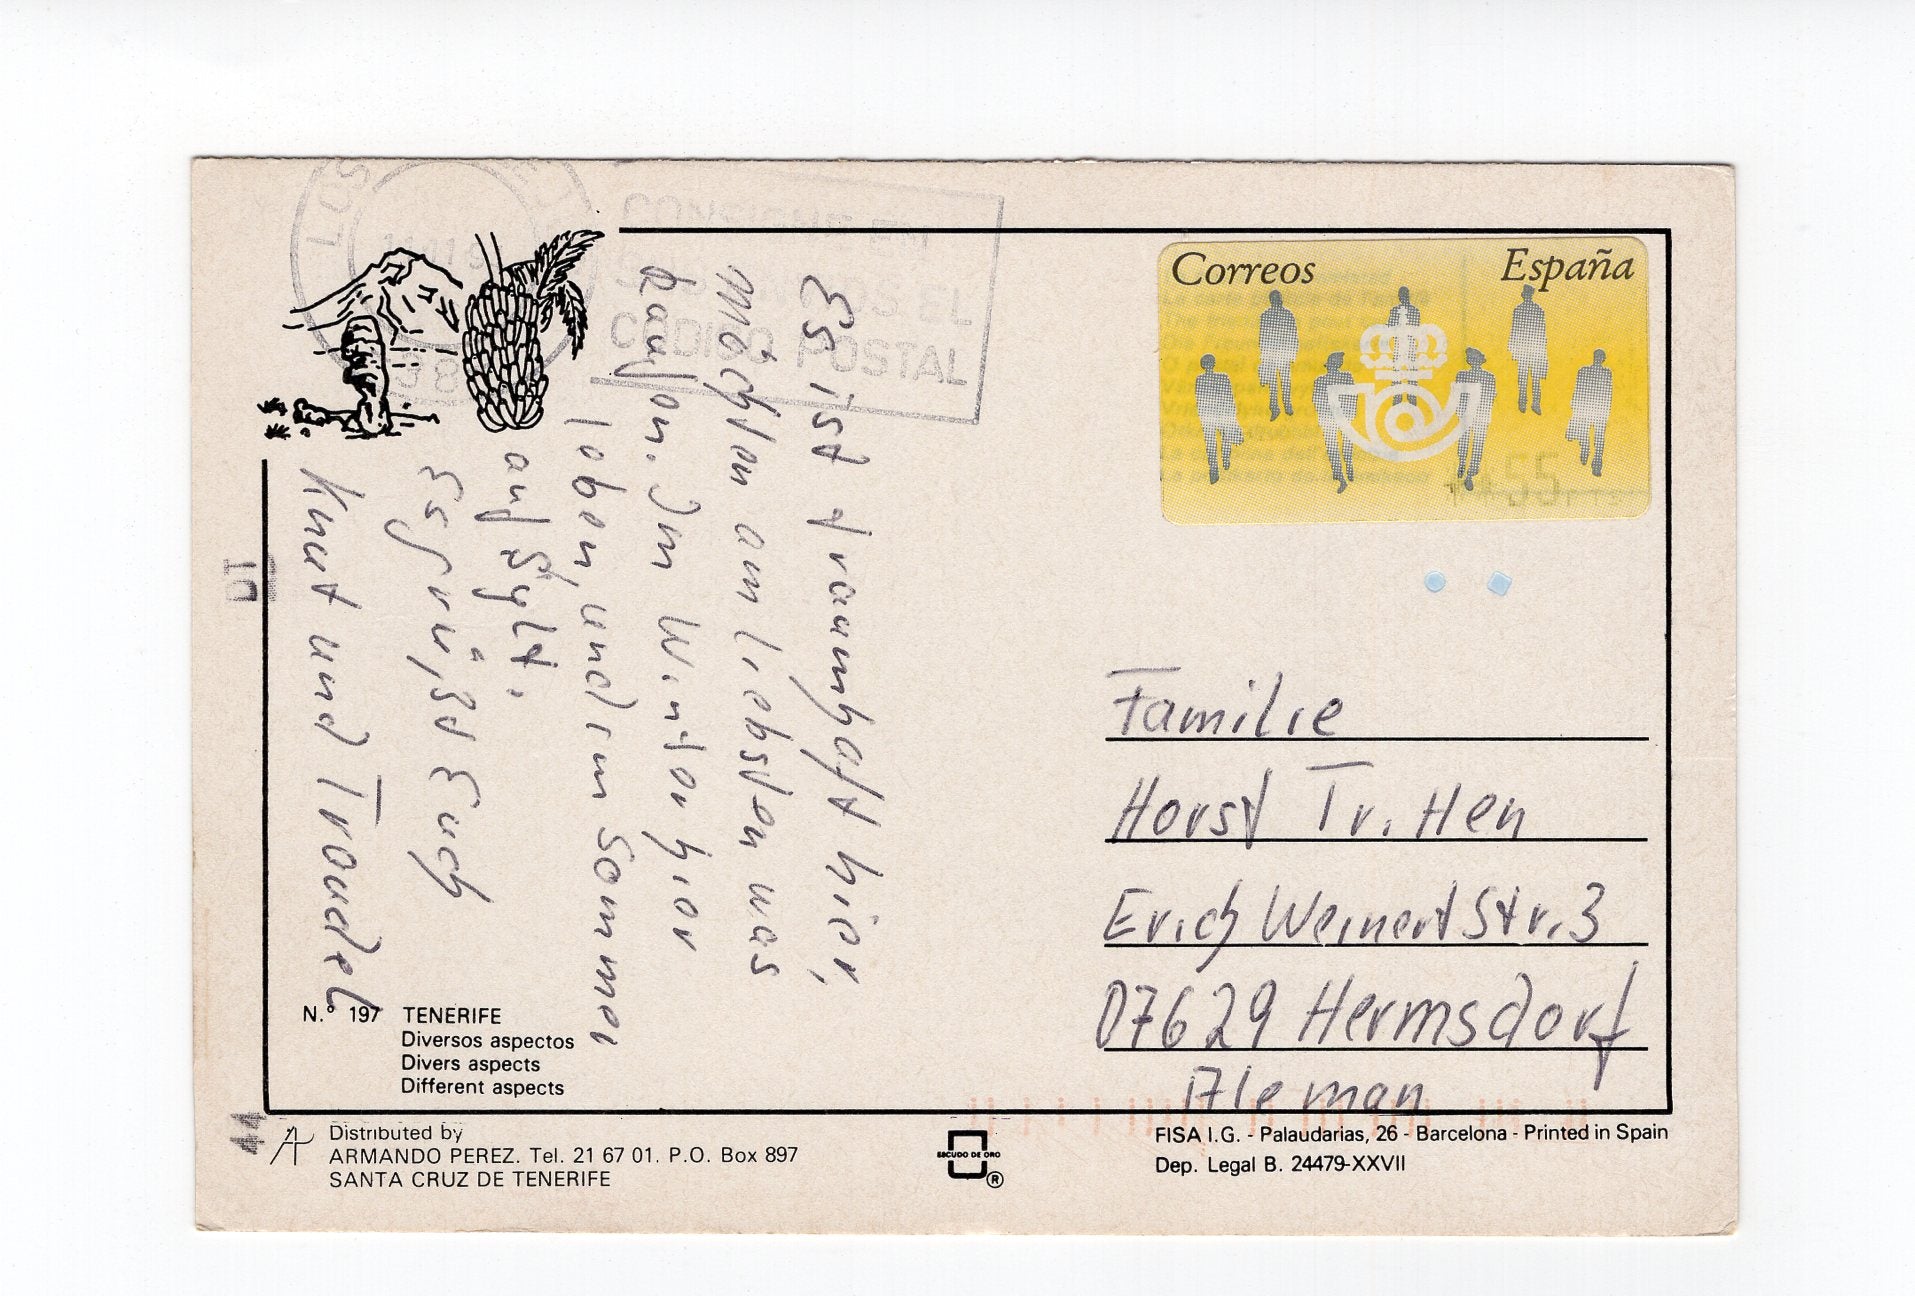 CONSIGNE EN
SUS ENVIOS EL
CODIGO POSTAL
38
Correos España
**55 PTS
Es ist traumhaft hier,
möchten am liebsten was
kaufen. Im Winter hier
leben, und im Sommer
auf Sylt.
Es grüßt Euch
Knut und Traudel
Familie
Horst Tr. Hen
Erich Weinert Str. 3
07629 Hermsdorf
Aleman
N.º 197 TENERIFE
Diversos aspectos
Divers aspects
Different aspects
Distributed by
ARMANDO PEREZ. Tel. 21 67 01. P.O. Box 897
SANTA CRUZ DE TENERIFE
ESCUDO DE ORO
®
FISA I.G. - Palaudarias, 26 - Barcelona - Printed in Spain
Dep. Legal B. 24479-XXVII